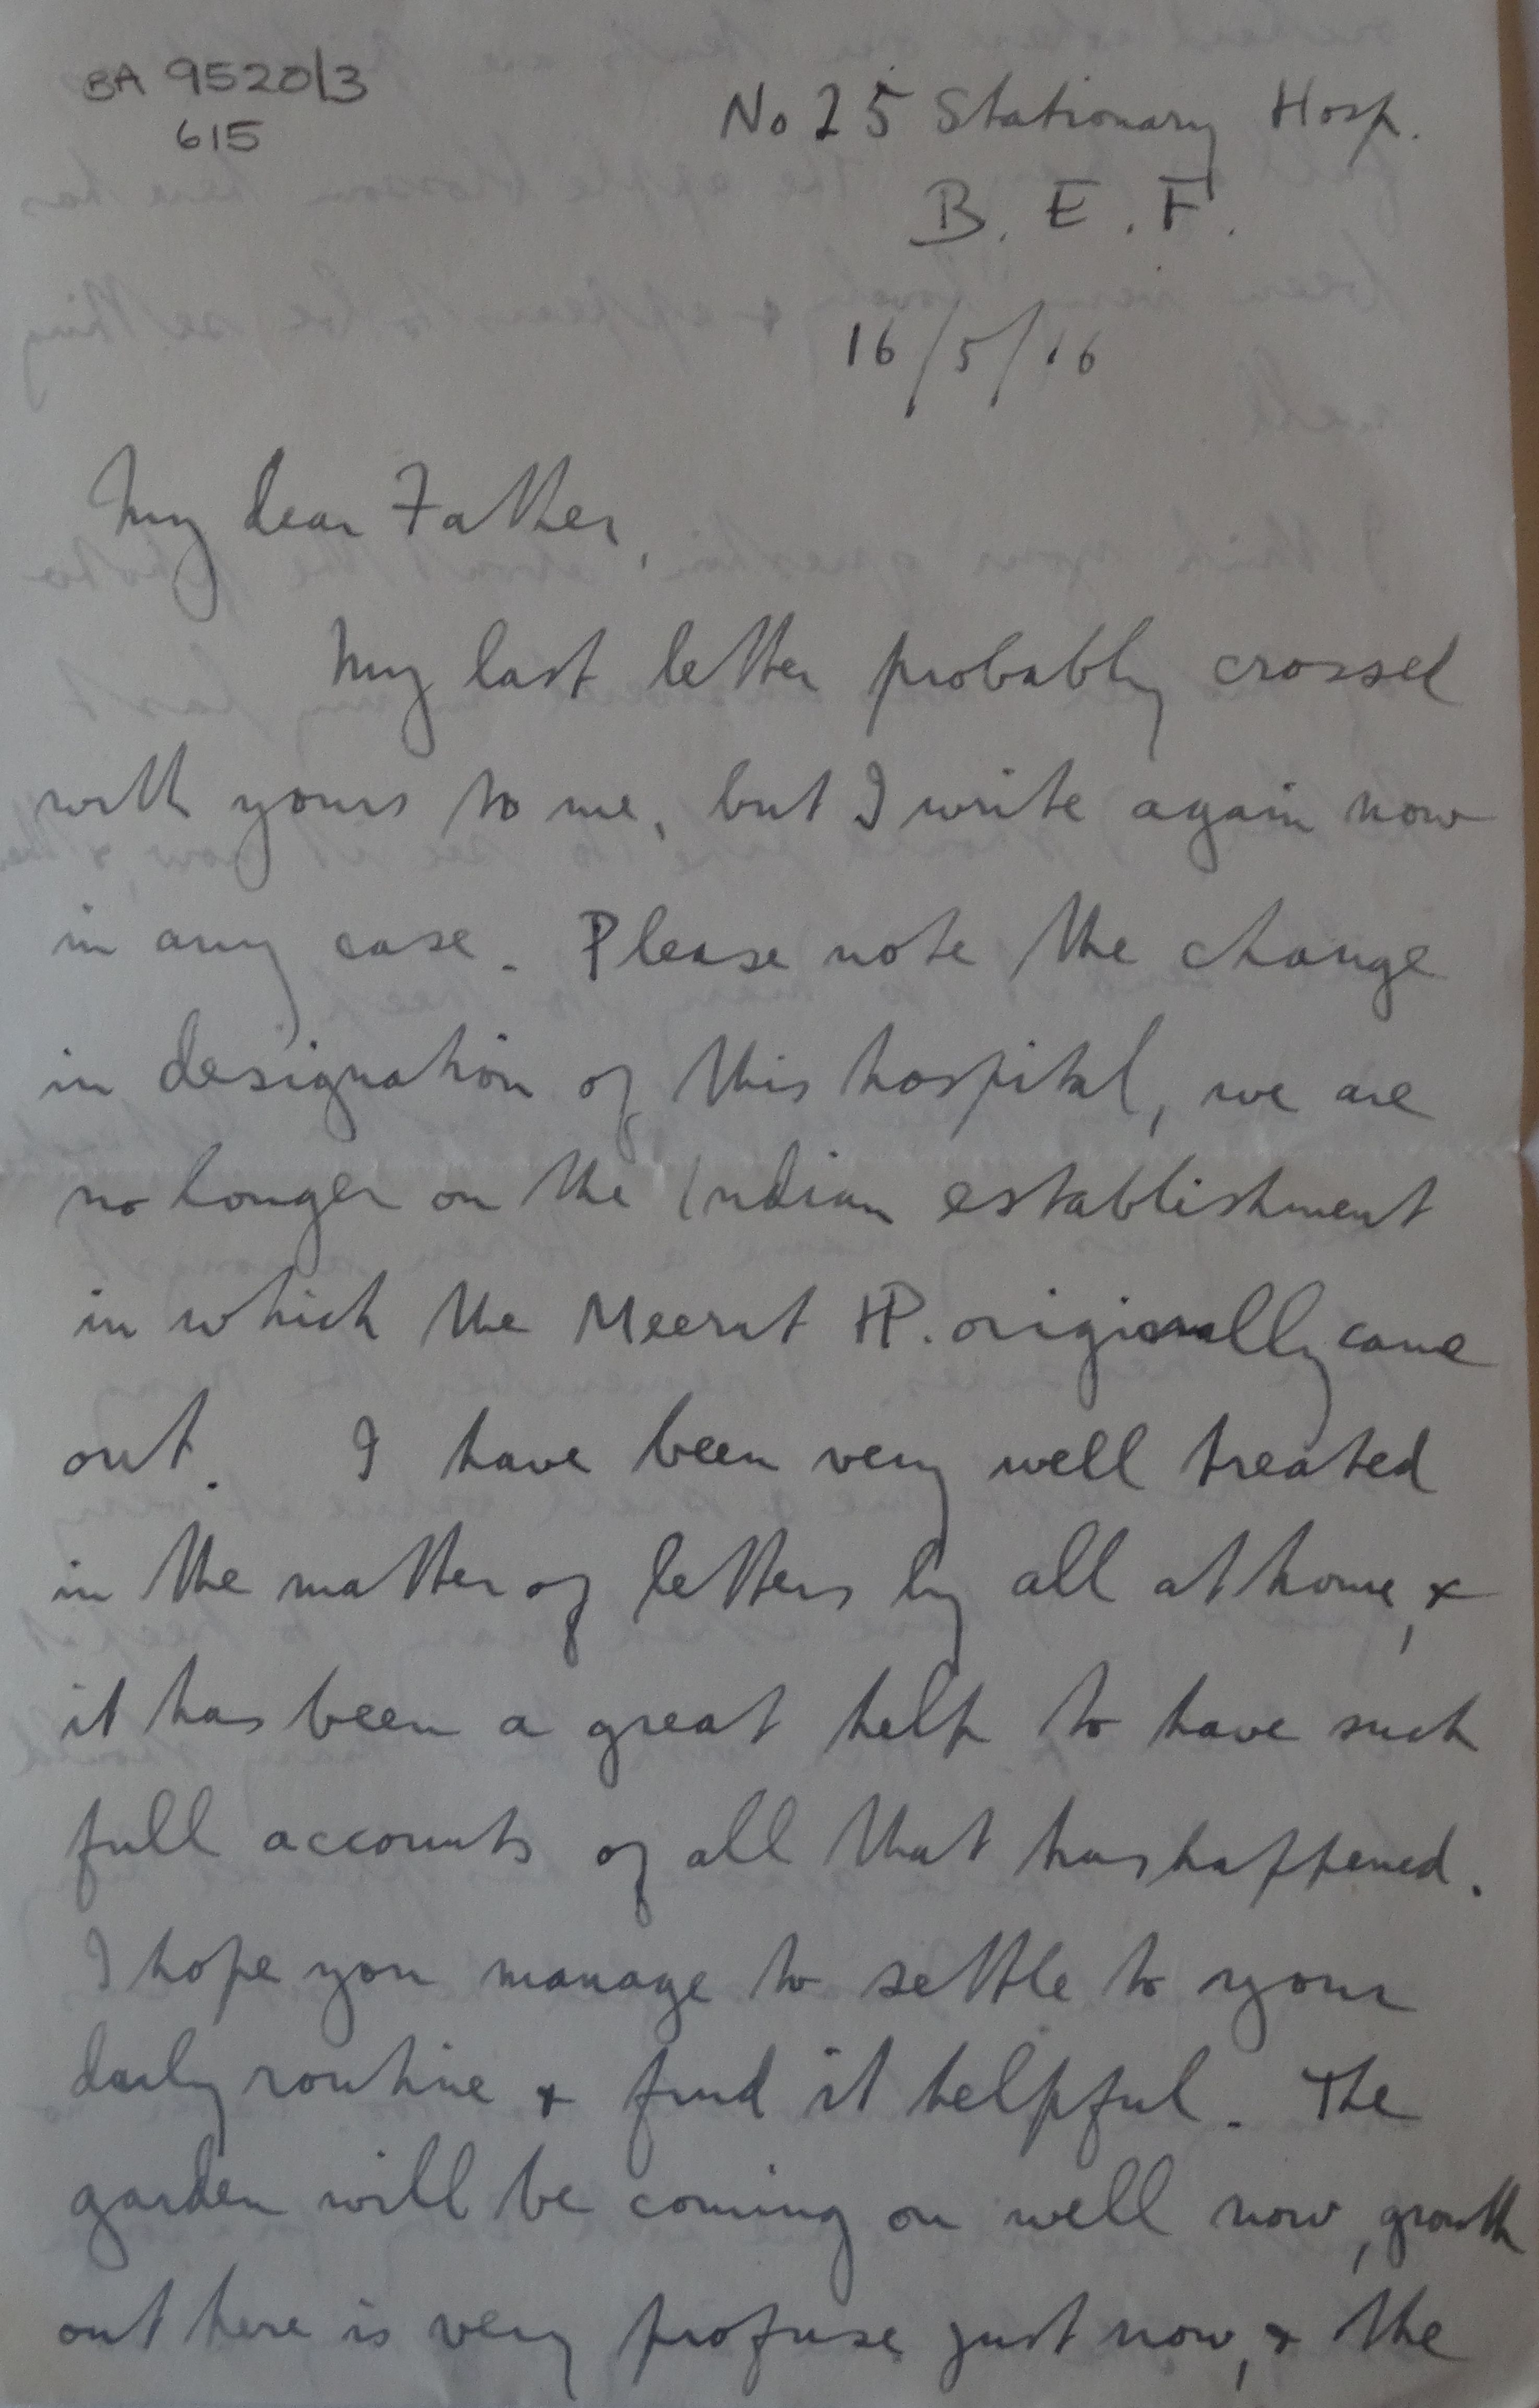 BA 9520/3
615
No 25 Stationary Hosp.
B. E. F.
16/5/16
My dear Father,
My last letter probably crossed
with yours to me, but I write again now
in any case. Please note the change
in designation of this hospital, we are
no longer on the Indian establishment
in which the Meerut HP. originally came
out. I have been very well treated
in the matter of letters by all at home, &
it has been a great help to have such
full accounts of all that has happened.
I hope you manage to settle to your
daily routine & find it helpful. The
garden will be coming on well now, growth
out here is very profuse just now, & the